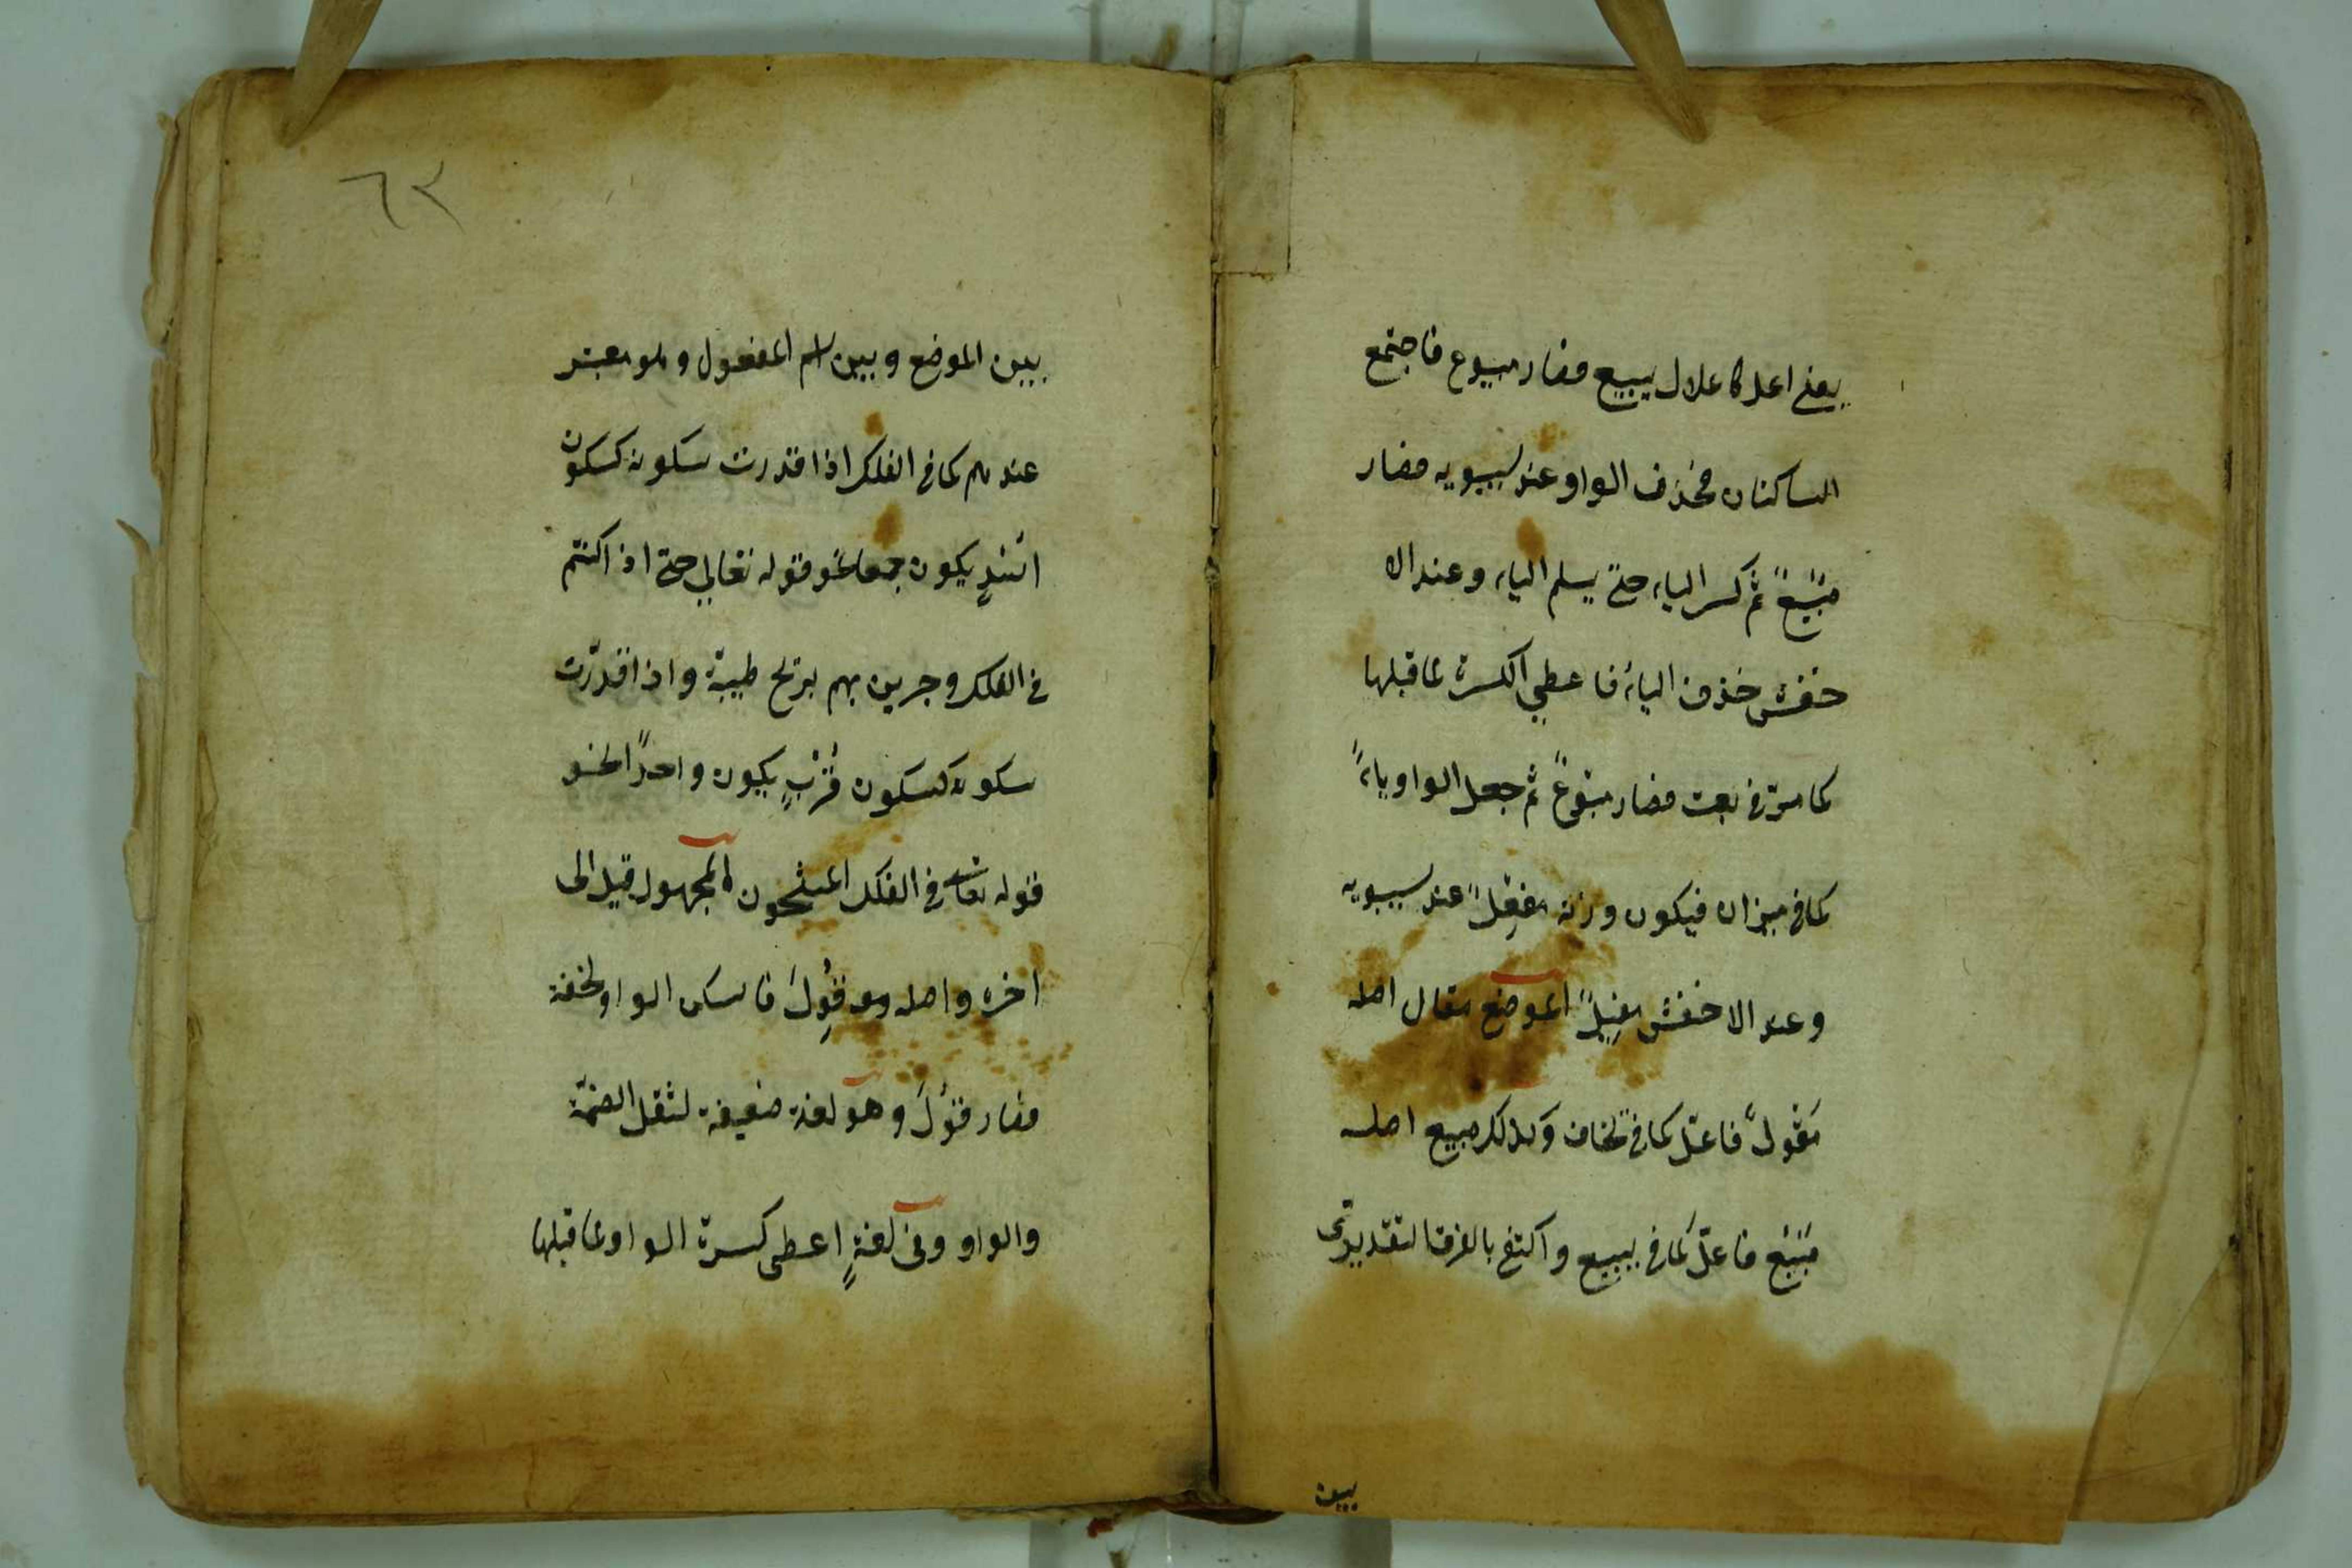 يعنى اعل كاعلال يبيع فصار مبيوع فاجتمع
الساكنان فحذف الواو عند سيبويه فصار
مبيع ثم كسر الياء حتى يسلم الياء وعند الا
خفش حذف الياء فاعطى الكسرة لما قبلها
كما مر فى بعت فصار مبوع ثم جعل الواو ياء
كما فى ميزان فيكون وزنه مفعل عند سيبويه
وعند الاخفش مفيل الموضع مقال اصله
مقول فاعل كما فى يخاف وكذلك مبيع اصله
مبيع فاعل كما فى يبيع واكتفى بالفرق التقديرى
بين
٦٣
بين الموضع وبين اسم المفعول وهو معتبر
عندهم كما فى الفلك اذا قدرت سكونه كسكون
اسد يكون جمعا نحو قوله تعالى حتى اذا كنتم
فى الفلك وجرين بهم بريح طيبة واذا قدرت
سكونه كسكون قرب يكون واحدا نحو
قوله تعالى فى الفلك المشحون المجهول قيل الى
اخره واصله قول فاسكن الواو لخفة
فصار قول وهو لغة ضعيفة لثقل الضمة
والواو وفى لغة اعطى كسرة الواو لما قبلها